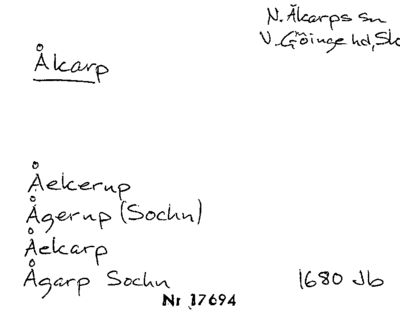 N. Åkarps sn
V. Göinge hd, Sk
Åkarp
Åekerup
Ågerup (Sochn)
Åekarp
Ågarp Sochn 1680 Jb
Nr 17694